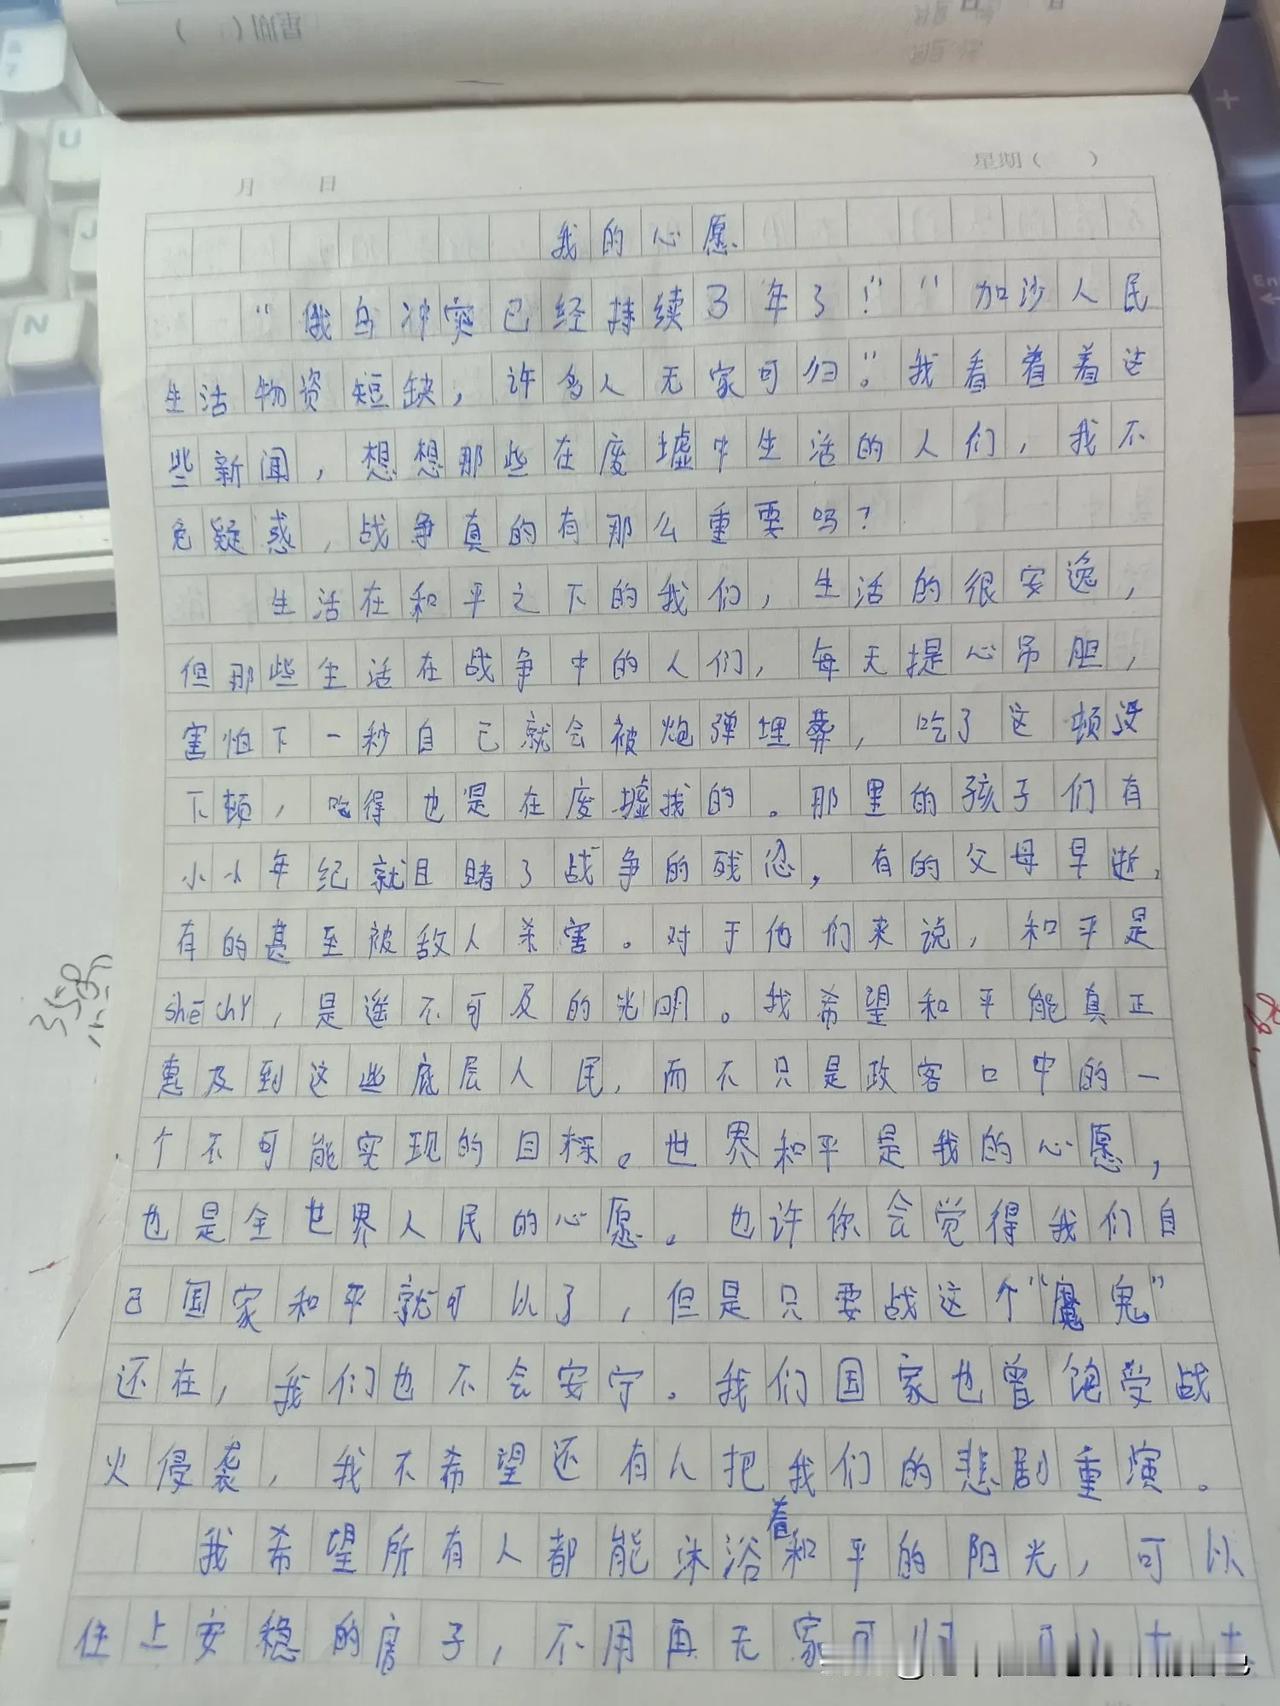 月 日 星期( )
我的心愿
“俄乌冲突已经持续了3年了!”“加沙人民
生活物资短缺,许多人无家可归。”我看着着这
些新闻,想想那些在废墟中生活的人们,我不
免疑惑,战争真的有那么重要吗?
生活在和平之下的我们,生活的很安逸,
但那些生活在战争中的人们,每天提心吊胆,
害怕下一秒自己就会被炮弹埋葬,吃了这顿没
下顿,吃得也是在废墟找的。那里的孩子们有
小小年纪就目睹了战争的残忍,有的父母早逝,
有的甚至被敌人杀害。对于他们来说,和平是
shē chǐ,是遥不可及的光明。我希望和平能真正
惠及到这些底层人民,而不只是政客口中的一
个不可能实现的目标。世界和平是我的心愿,
也是全世界人民的心愿。也许你会觉得我们自
己国家和平就可以了,但是只要战这个“魔鬼”
还在,我们也不会安宁。我们国家也曾饱受战
火侵袭,我不希望还有人把我们的悲剧重演。
我希望所有人都能沐浴着和平的阳光,可以
住上安稳的房子,不用再无家可归